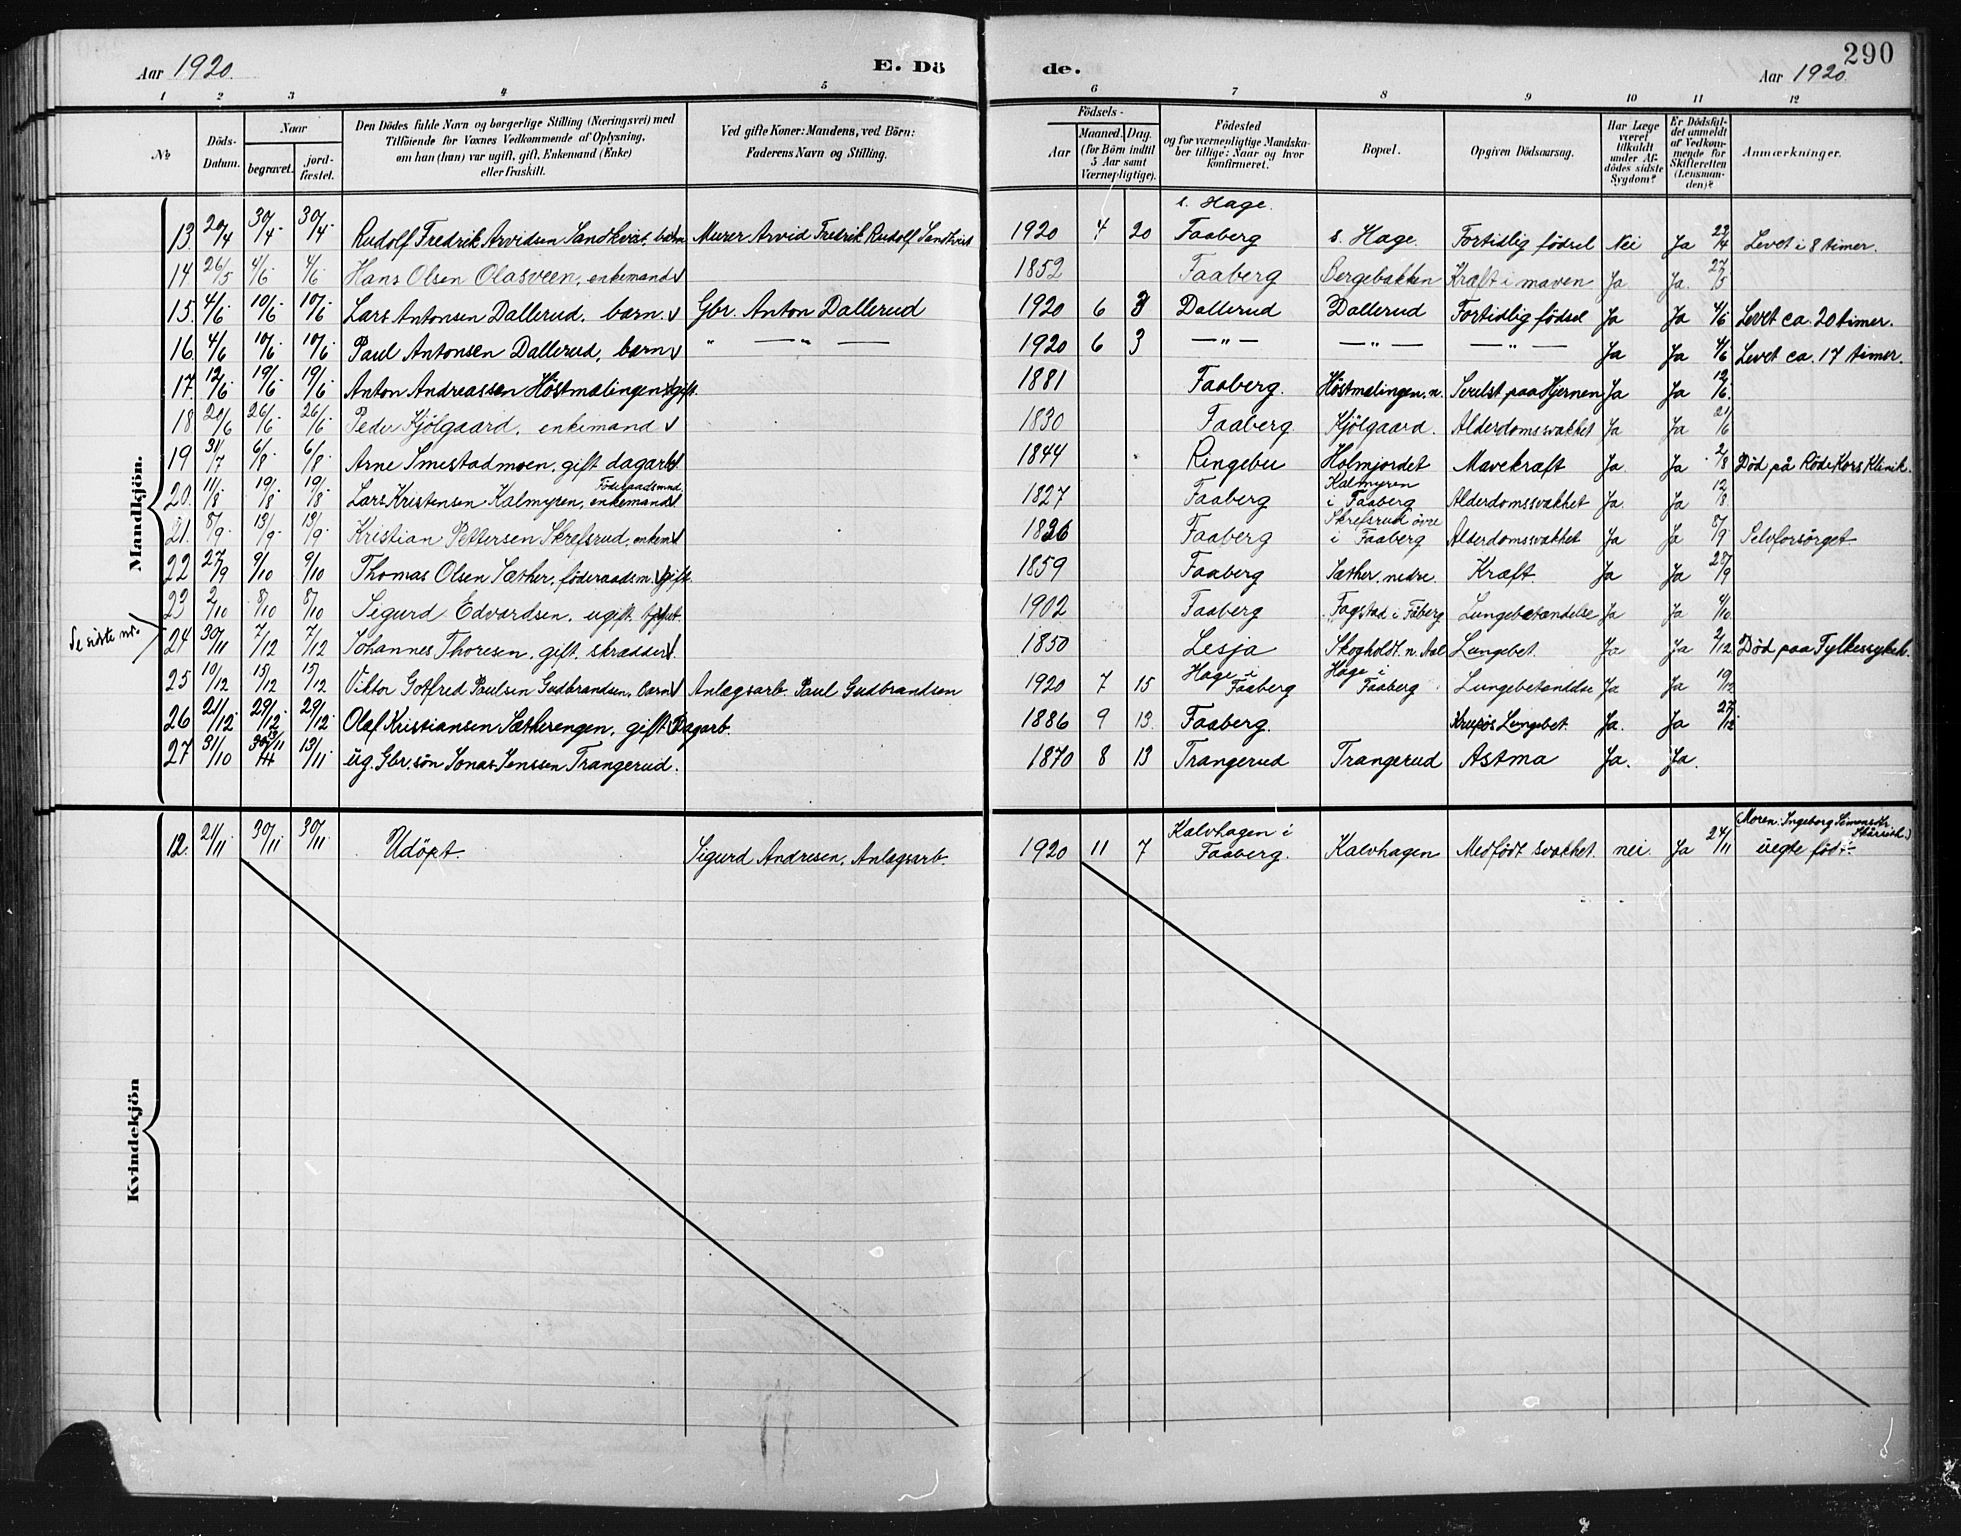 290
Aar 1920. E. Dö de. Aar 1920.
1 2 3 4 5 6 7 8 9 10 11 12
No
Döds-Datum.
Naar
begravet.
jord-fæstet.
Den Dödes fulde Navn og borgerlige Stilling (Næringsvei) med
Tilföiende for Voxnes Vedkommende af Oplysning,
om han (hun) var ugift, gift, Enkemand (Enke)
eller fraskilt.
Ved gifte Koner: Mandens, ved Börn:
Faderens Navn og Stilling.
Födsels-
Aar
Maaned. Dag.
(for Börn indtil
5 Aar samt
Værnepligtige).
Födested
og for værnepligtige Mandska-
ber tillige: Naar og hvor
konfirmeret.
Bopæl.
Opgiven Dödsaarsag.
Har Læge
været
tilkaldt
under Af-
dödes sidste
Sygdom?
Er Dödsfal-
det anmeldt
af Vedkom-
mende for
Skifteretten
(Lensman-
den)?
Anmærkninger.
Mandkjön.
s. Hage.
13 20/4 30/4 30/4 Rudolf Fredrik Arvidsen Sandkvist, barn Murer Arvid Fredrik Rudolf Sandkvist 1920 4 20 Faaberg s. Hage. Fortidlig födsel Nei Ja 22/4 Levet i 8 timer.
14 26/5 4/6 4/6 Hans Olsen Olasveen, enkemand 1852 Faaberg Bergebakken Kræft i maven Ja Ja. 27/5
15. 4/6 10/6 10/6 Lars Antonsen Dallerud, barn. Gbr. Anton Dallerud 1920 6 3 Dallerud Dallerud Fortidlig födsel Ja Ja 4/6 Levet ca. 20 timer.
16. 4/6 10/6 10/6 Paul Antonsen Dallerud, barn " — " — 1920 6 3 — " — — " — — " — Ja Ja 4/6 Levet ca. 17 timer.
17. 12/6 19/6 19/6 Anton Andreassen Höstmælingen gift. 1881 Faaberg. Höstmælingen. n. Svulst paa Hjernen Ja Ja 12/6.
18. 20/6 26/6 26/6 Peder Kjölgaard, enkemand 1830 Faaberg Kjölgaard. Alderdomssvakhet Ja Ja 21/6
19 31/7 6/8 6/8 Arne Smestadmoen, gift dagarb. 1844 Ringebu Holmjordet Mavekræft Ja Ja 2/8 Död på Röde Kors Klinik.
Föderaadsmnd.
Kalmyren
20. 11/8 19/8 19/8 Lars Kristensen Kalmyren, enkemand 1827 Faaberg i Faaberg Alderdomssvakhet Ja. Ja 12/8
Skrefsrud övre
21. 8/9 13/9 13/9 Kristian Pettersen Skrefsrud, enkem. 1826 Faaberg i Faaberg Alderdomssvakhet Ja Ja 8/9 Selvforsörget.
22 27/9 9/10 9/10 Thomas Olsen Sæther, föderaadsm. gift. 1859 Faaberg Sæther nedre. Kræft. Ja Ja 28/9
23 2/10 8/10 8/10 Sigurd Edvardsen, ugift. 1902 Faaberg Fagstad i Fåberg Lungebetændelse Ja Ja 4/10
Se sidste nr.
24 30/11 7/12 7/12 Johannes Thoresen, gift. skrædder. 1850 Lesja Skogholdt. n. Aal Lungebet. Ja Ja 2/12 Död paa Fylkessykeh.
Hage i Hage i
25 10/12 15/12 15/12 Viktor Gotfred Paulsen Gudbrandsen, barn Anlægsarb. Paul Gudbrandsen 1920 7 15 Faaberg Faaberg Lungebetændelse Ja Ja
26 21/12. 29/12. 29/12. Olaf Kristiansen Sætherengen, gift Dagarb. 1886 9 13. Faaberg. Krupös Lungebet. Ja. Ja 27/12
27 31/10 13/11 13/11 ug. Gbr. sön Jonas Jenssen Trangerud. 1870 8 13 Trangerud Trangerud Astma Ja. Ja.
Kvindekjön
(Moren: Ingeborg Simensdtr.
Kalvhagen i
12. 21/11 30/11 30/11 Udöpt. Sigurd Andresen, Anlægsarb. 1920 11 7 Faaberg. Kalvhagen Medfödt svakhet. nei. Ja 24/11 uegte född